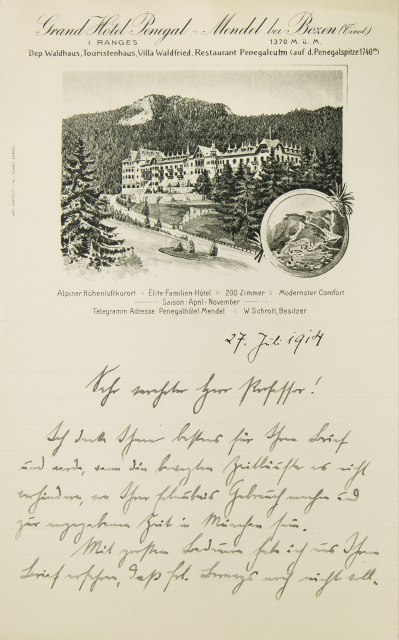 Grand Hotel Penegal - Mendel bei Bozen (Tirol)
I RANGES 1370 M. ü. M.
Dep. Waldhaus, Touristenhaus, Villa Waldfried, Restaurant Penegalculm (auf d. Penegalspitze 1740m)
Alpiner Höhenluftkurort ◇ Elite-Familien-Hôtel ◇ 200 Zimmer ◇ Modernster Comfort
Saison: April - November
Telegramm Adresse: Penegalhôtel Mendel : W. Schrott, Besitzer
27. Juli 1914
Sehr verehrter Herr Professor!
Ich danke Ihnen bestens für Ihren Brief
und werde, wenn die bewegten Zeitläufte es nicht
verhindern, von Ihrer Erlaubnis Gebrauch machen und
zur angegebenen Zeit in München sein.
Mit großem Bedauern habe ich aus Ihrem
Brief ersehen, daß noch nicht voll-